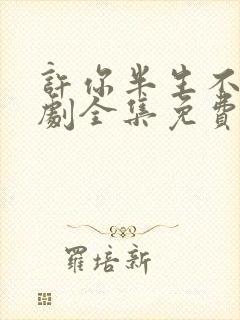 許你半生不
劇全集免費
羅培新